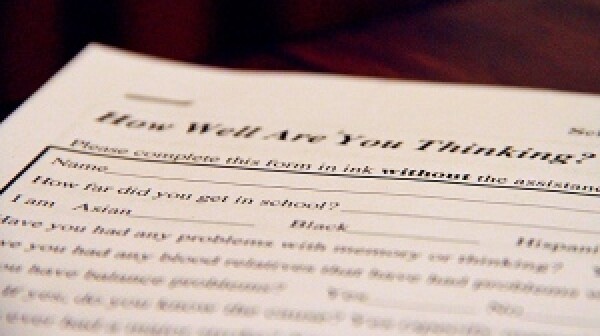 How Well Are You Thinking?
Please complete this form in ink without the
Name
How far did you get in school?
I am Asian Black
Have you had any problems with memory or thinking?
you had any blood relatives that have had problems
have balance problems? Yes No
If yes, do you know the cause?